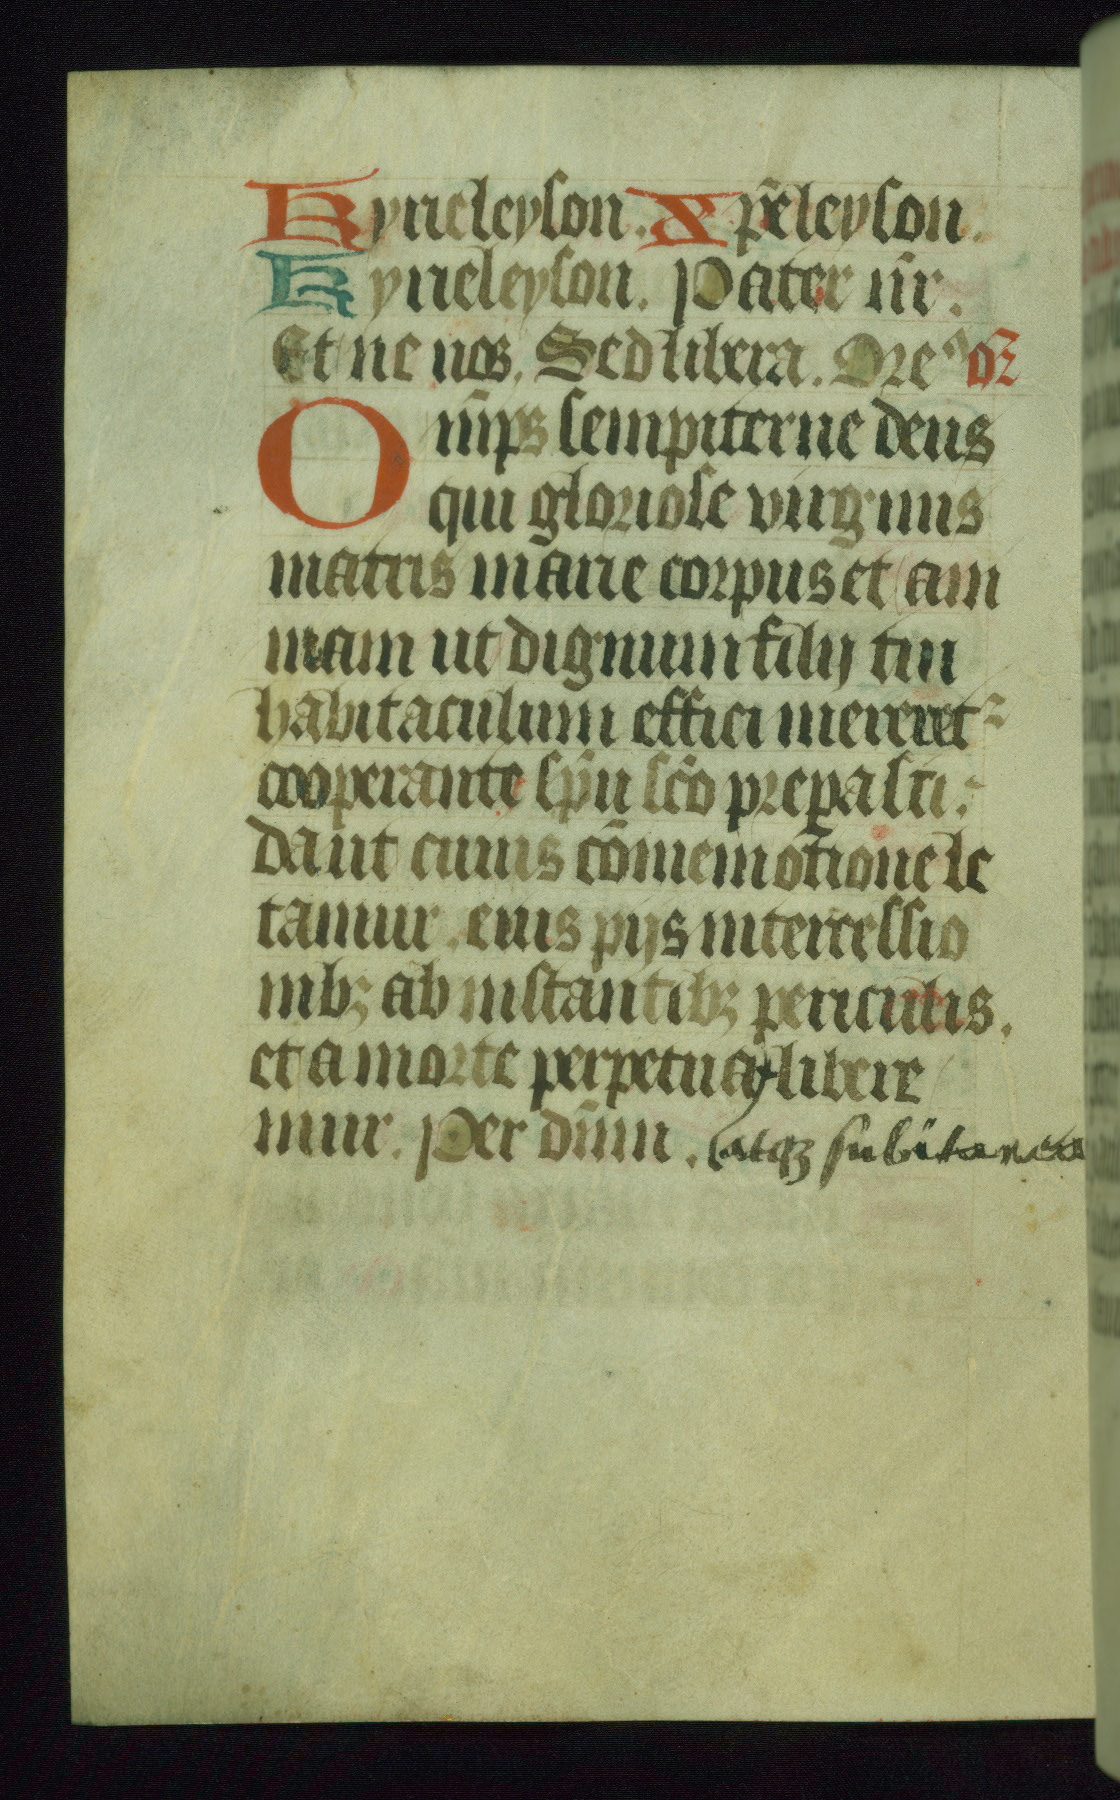 Kyrieleyson. Xp̄eleyson.
Kyrieleyson. Pater nr̄.
Et ne nos. Sed libera. Ore
O
mp̄s sempiterne deus
qui gloriose virginis
matris marie corpus et ani
mam ut dignum filij tui
habitaculum effici mereret
cooperante sp̄u sc̄o preparasti.
da ut cuius cōmemorat̄ione le
tamur. eius pijs intercessio
nibꝫ ab instantibꝫ periculis.
et a morte perpetua libere
mur. Per dn̄m. atqꝫ subitanea